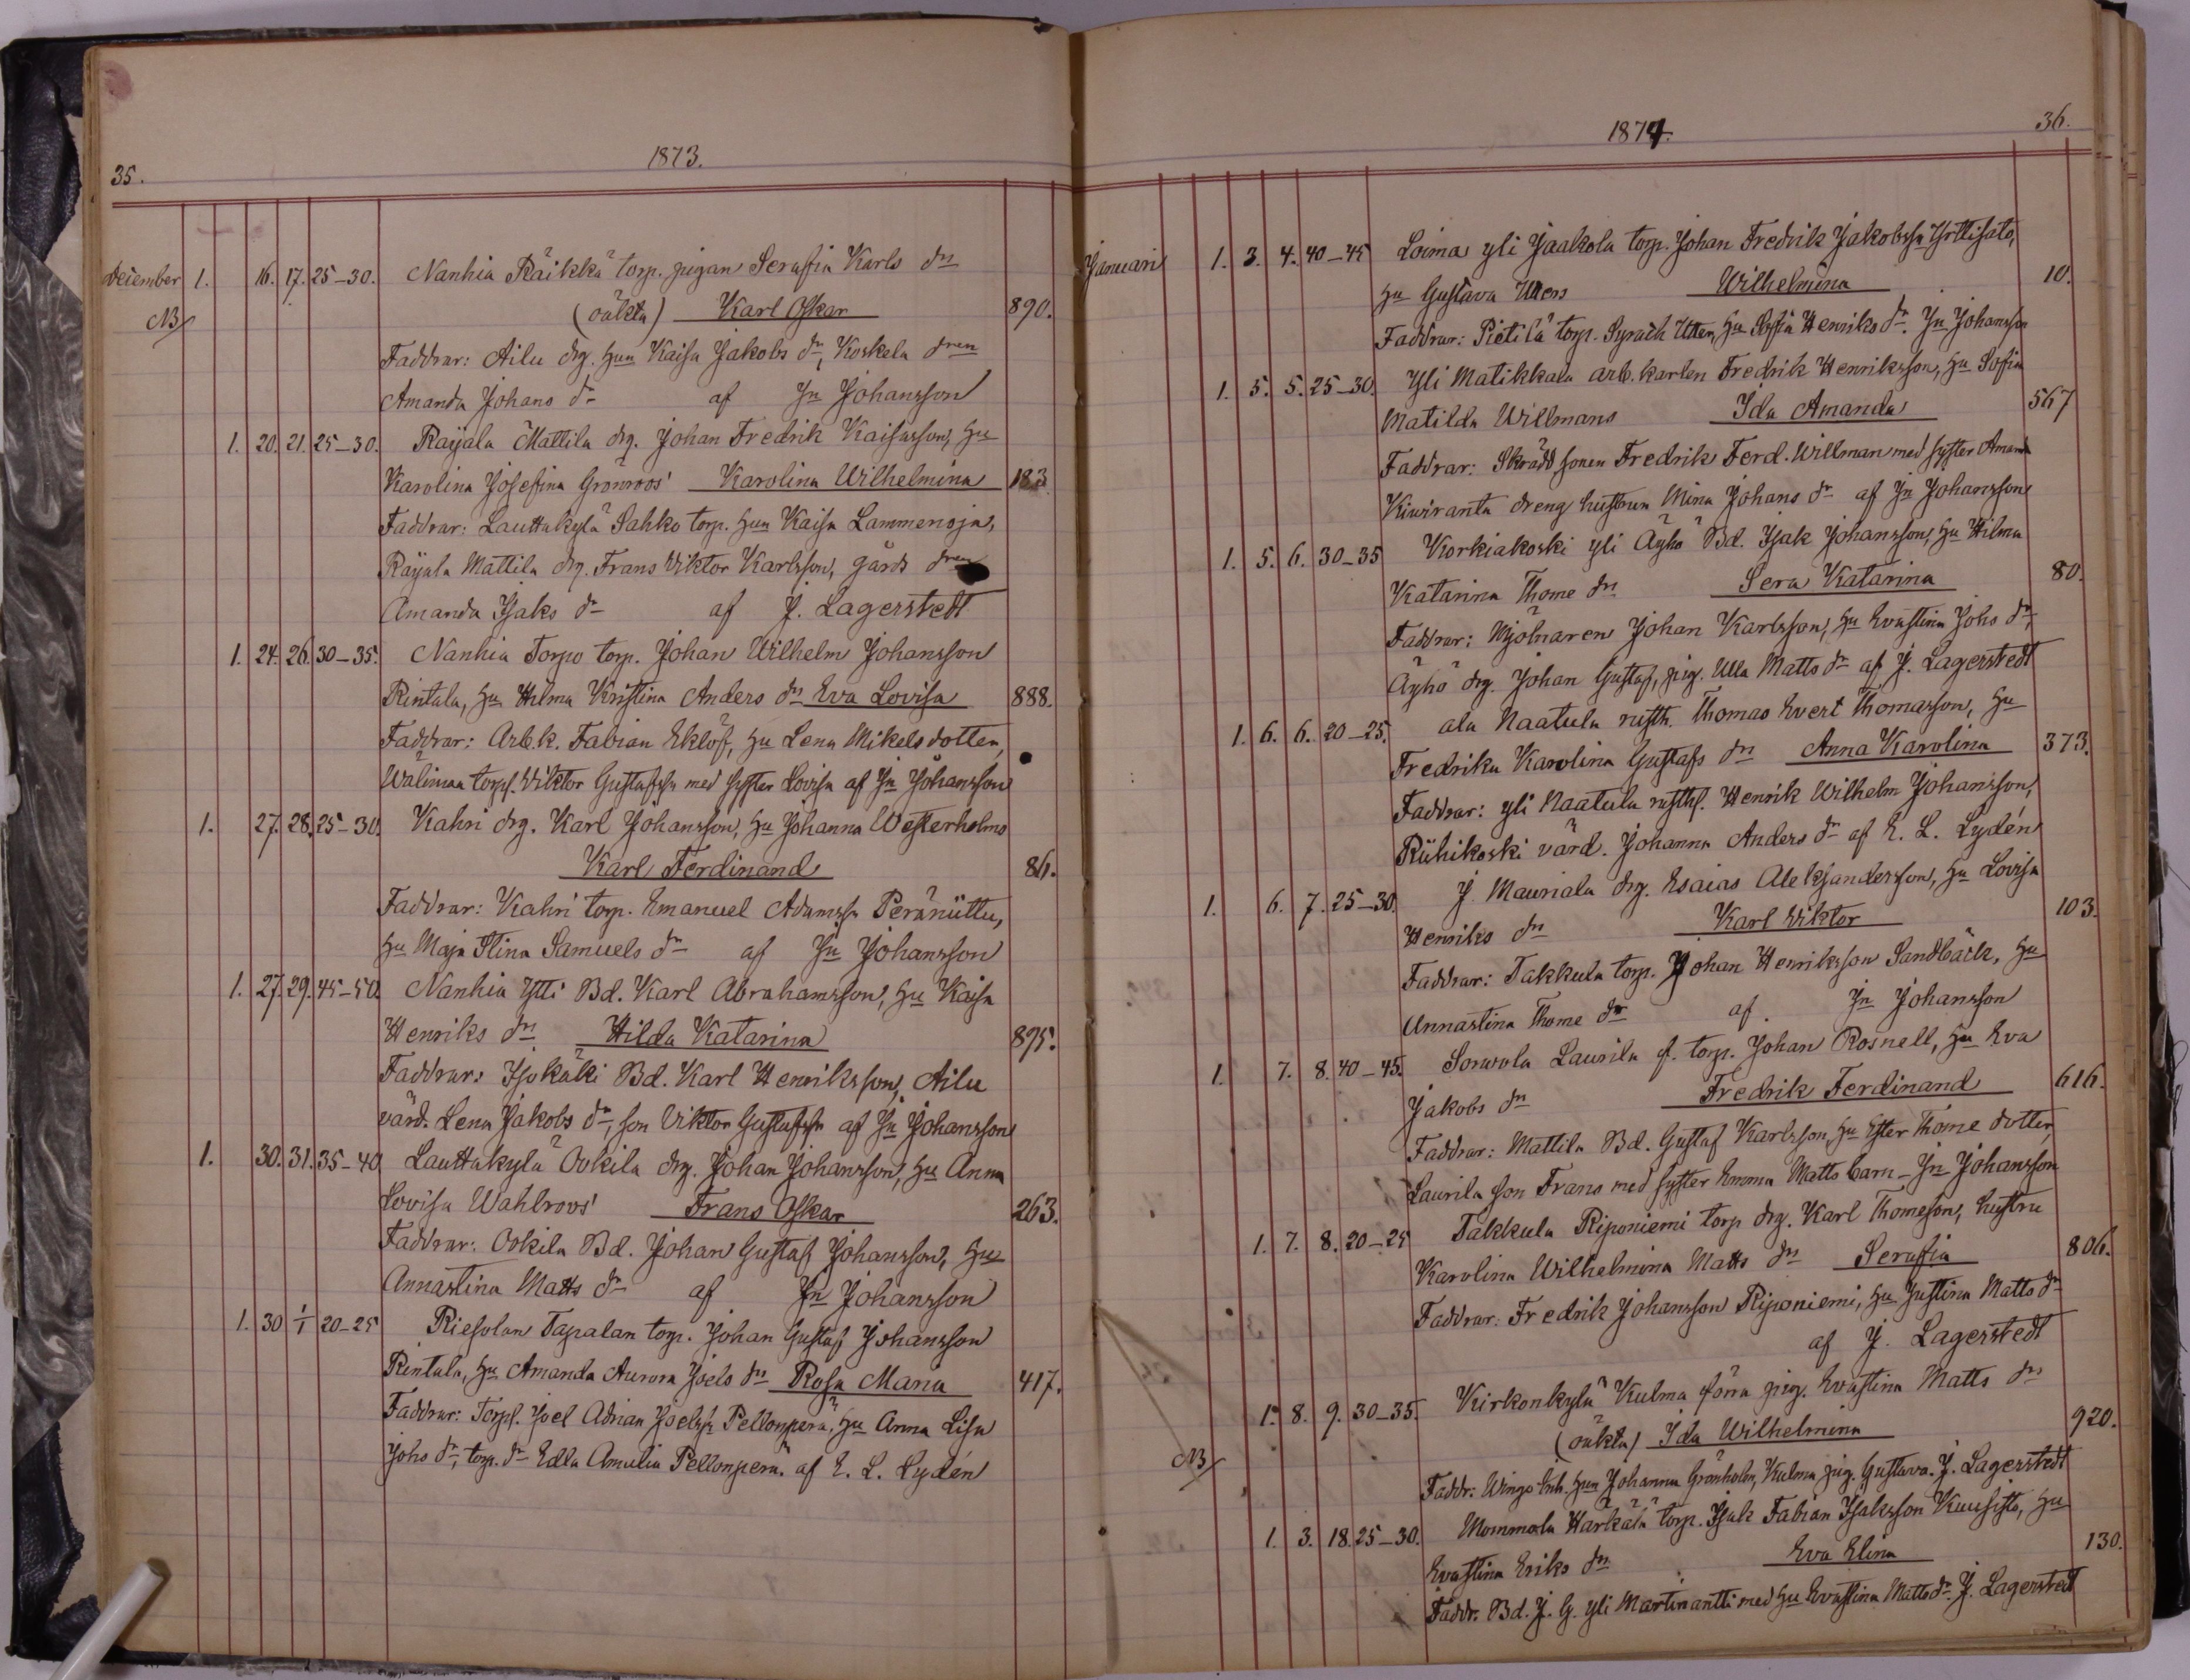 35.
1873.
December 1. 16. 17. 25–30. Nanhia Räikkä torp. pigan Serafia Karls dr
NB (oäkta) Karl Oskar 890.
Faddrar: Ailu drg. hun Kaisa Jakobs dr, Koskela dren
Amanda Johans dr af Jn Johansson
1. 20. 21. 25–30. Raijala Mattila drg. Johan Fredrik Kaisasson, hu
Karolina Josefina Grönroos' Karolina Wilhelmina 183
Faddrar: Lauttakylä Sahko torp. hun Kaisa Lammenoja,
Raijala Mattila drg. Frans Viktor Karlsson, gårds dren
Amanda Isaks dr af J. Lagerstedt
1. 24. 26. 30–35. Nanhia Torpo torp. Johan Wilhelm Johansson
Rintala, hu Hilma Kristina Anders dr Eva Lovisa 888.
Faddrar: Arb.k. Fabian Eklöf, hu Lena Mikels dotter,
Wälimaa torps. Viktor Gustafssn med syster Lovisa af Jn Johansson
1. 27. 28. 25–30. Kahri drg. Karl Johansson, hu Johanna Westerholms
Karl Ferdinand 86.
Faddrar: Kahri torp. Emanuel Adamssn Peräniittu,
hu Maja Stina Samuels dr af Jn Johansson
1. 27. 29. 45–50. Nanhia Ytti Bd. Karl Abrahamsson, hu Kaisa
Henriks dr Hilda Katarina 895.
Faddrar: Isokäki Bd. Karl Henriksson, Ailu
värd. Lena Jakobs dr, son Viktor Gustafssn af Jn Johansson
1. 30. 31. 35–40 Lauttakylä Ookila drg. Johan Johansson, hu Anna
Lovisa Wahlroos' Frans Oskar 263.
Faddrar: Ookila Bd. Johan Gustaf Johansson, hu
Annastina Matts dr af Jn Johansson
1. 30 1/1 20–25 Riesolan Tapalan torp. Johan Gustaf Johansson
Rintala, hu Amanda Aurora Joels dr Rosa Maria 417.
Faddrar: Torps. Joel Adrian Joelssn Pellonperä, hu Anna Lisa
Johs dr, torp. dr Edla Amalia Pellonperä. af E. L. Lydén
1874.
36.
Januari 1. 3. 4. 40–45 Loima yli Jaakola torp. Johan Fredrik Jakobssn Yrttisalo,
hu Gustava Uters Wilhelmina 10.
Faddrar: Pietilä torp. Syrach Utter, hu Sofia Henriks dr. Jn Johansson
1. 5. 5. 25–30. Yli Matikkala arb.karlen Fredrik Henriksson, hu Sofia
Matilda Willmans Ida Amanda 567
Faddrar: Skrädd sonen Fredrik Ferd. Willman med syster Amanda
Kiviranta dreng hustrun Mina Johans dr af Jn Johansson
1. 5. 6. 30–35 Korkiakoski yli Äyhö Bd. Isak Johansson, hu Hilma
Katarina Thome dr Sera Katarina 80.
Faddrar: Mjölnaren Johan Karlsson, hu Evastina Johs dr,
Äyhö drg. Johan Gustaf, pig. Ulla Matts dr af J. Lagerstedt
1. 6. 6. 20–25. ala Naatula rusth. Thomas Evert Thomasson, hu
Fredrika Karolina Gustafs dr Anna Karolina 373.
Faddrar: yli Naatula rusths. Henrik Wilhelm Johansson,
Riihikoski värd. Johanna Anders dr af E. L. Lydén
1. 6. 7. 25–30. J. Mauriala drg. Esaias Aleksandersson, hu Lovisa
Henriks dr Karl Viktor 103.
Faddrar: Takkula torp. Johan Henriksson Sandbäck, hu
Annastina Thome dr af Jn Johansson
1. 7. 8. 40–45. Sonvola Laurila f. torp. Johan Rosnell, hu Eva
Jakobs dr Fredrik Ferdinand 616.
Faddrar: Mattila Bd. Gustaf Karlsson, hu Ester Thome dotter,
Laurila son Frans med syster Emma Matts barn – Jn Johansson
1. 7. 8. 20–25 Takkula Riponiemi torp drg. Karl Thomeson, hustru
Karolina Wilhelmina Matts dr Serafia 806.
Faddrar: Fredrik Johansson Riponiemi, hu Justina Matts dr
af J. Lagerstedt
1. 8. 9. 30–35. Kirkonkylä Kulma förra pig. Evastina Matts dr
NB (oäkta) Ida Wilhelmina 920.
Faddr: Wingo Inh. hun Johanna Grönholm, Kulma pig. Gustava. J. Lagerstedt
1. 3. 18. 25–30. Mommola Härkälä torp. Isak Fabian Isaksson Kuusisto, hu
Evastina Eriks dr Eva Elina 130.
Faddr. Bd. J. G. yli Martinantti med hu Evastina Matts dr J. Lagerstedt